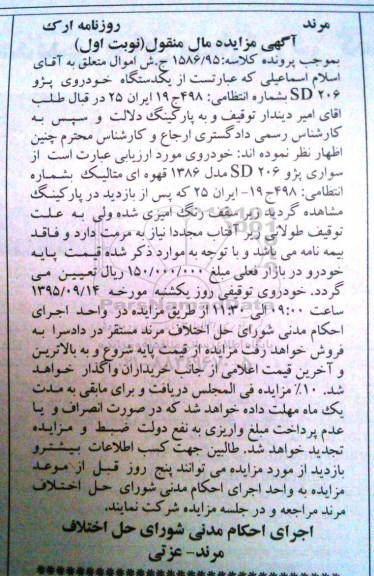 مرند روزنامه ارک
آگهی مزایده مال منقول(نوبت اول)
بموجب پرونده کلاسه:۱۵۸۶/۹۵ ج.ش اموال متعلق به آقای
اسلام اسماعیلی که عبارتست از یکدستگاه خودروی پژو
۲۰۶ SD بشماره انتظامی: ۴۹۸ج۱۹ ایران ۲۵ در قبال طلب
اقای امیر دیندار توقیف و به پارکینگ دلالت و سپس به
کارشناس رسمی دادگستری ارجاع و کارشناس محترم چنین
اظهار نظر نموده اند: خودروی مورد ارزیابی عبارت است از
سواری پژو ۲۰۶ SD مدل ۱۳۸۶ قهوه ای متالیک بشماره
انتظامی: ۴۹۸ج۱۹- ایران ۲۵ که پس از بازدید در پارکینگ
مشاهده گردید زیر سقف رنگ امیزی شده ولی به علت
توقیف طولانی زیر آفتاب مجددا نیاز به مرمت دارد و فاقد
بیمه نامه می باشد و با توجه به موارد ذکر شده قیمت پایه
خودرو در بازار فعلی مبلغ ۱۵۰/۰۰۰/۰۰۰ ریال تعیین می
گردد. خودروی توقیفی روز یکشنبه مورخه ۱۳۹۵/۰۹/۱۴
ساعت ۹:۰۰ الی ۱۱:۳۰ از طریق مزایده در واحد اجرای
احکام مدنی شورای حل اختلاف مرند مستقر در دادسرا به
فروش خواهد رفت مزایده از قیمت پایه شروع و به بالاترین
و آخرین قیمت اعلامی از جانب خریداران واگذار خواهد
شد. ۱۰٪ مزایده فی المجلس دریافت و برای مابقی به مدت
یک ماه مهلت داده خواهد شد که در صورت انصراف و یا
عدم پرداخت مبلغ واریزی به نفع دولت ضبط و مزایده
تجدید خواهد شد. طالبین جهت کسب اطلاعات بیشترو
بازدید از مورد مزایده می توانند پنج روز قبل از موعد
مزایده به واحد اجرای احکام مدنی شورای حل اختلاف
مرند مراجعه و در جلسه مزایده شرکت نمایند.
اجرای احکام مدنی شورای حل اختلاف
مرند- عزتی